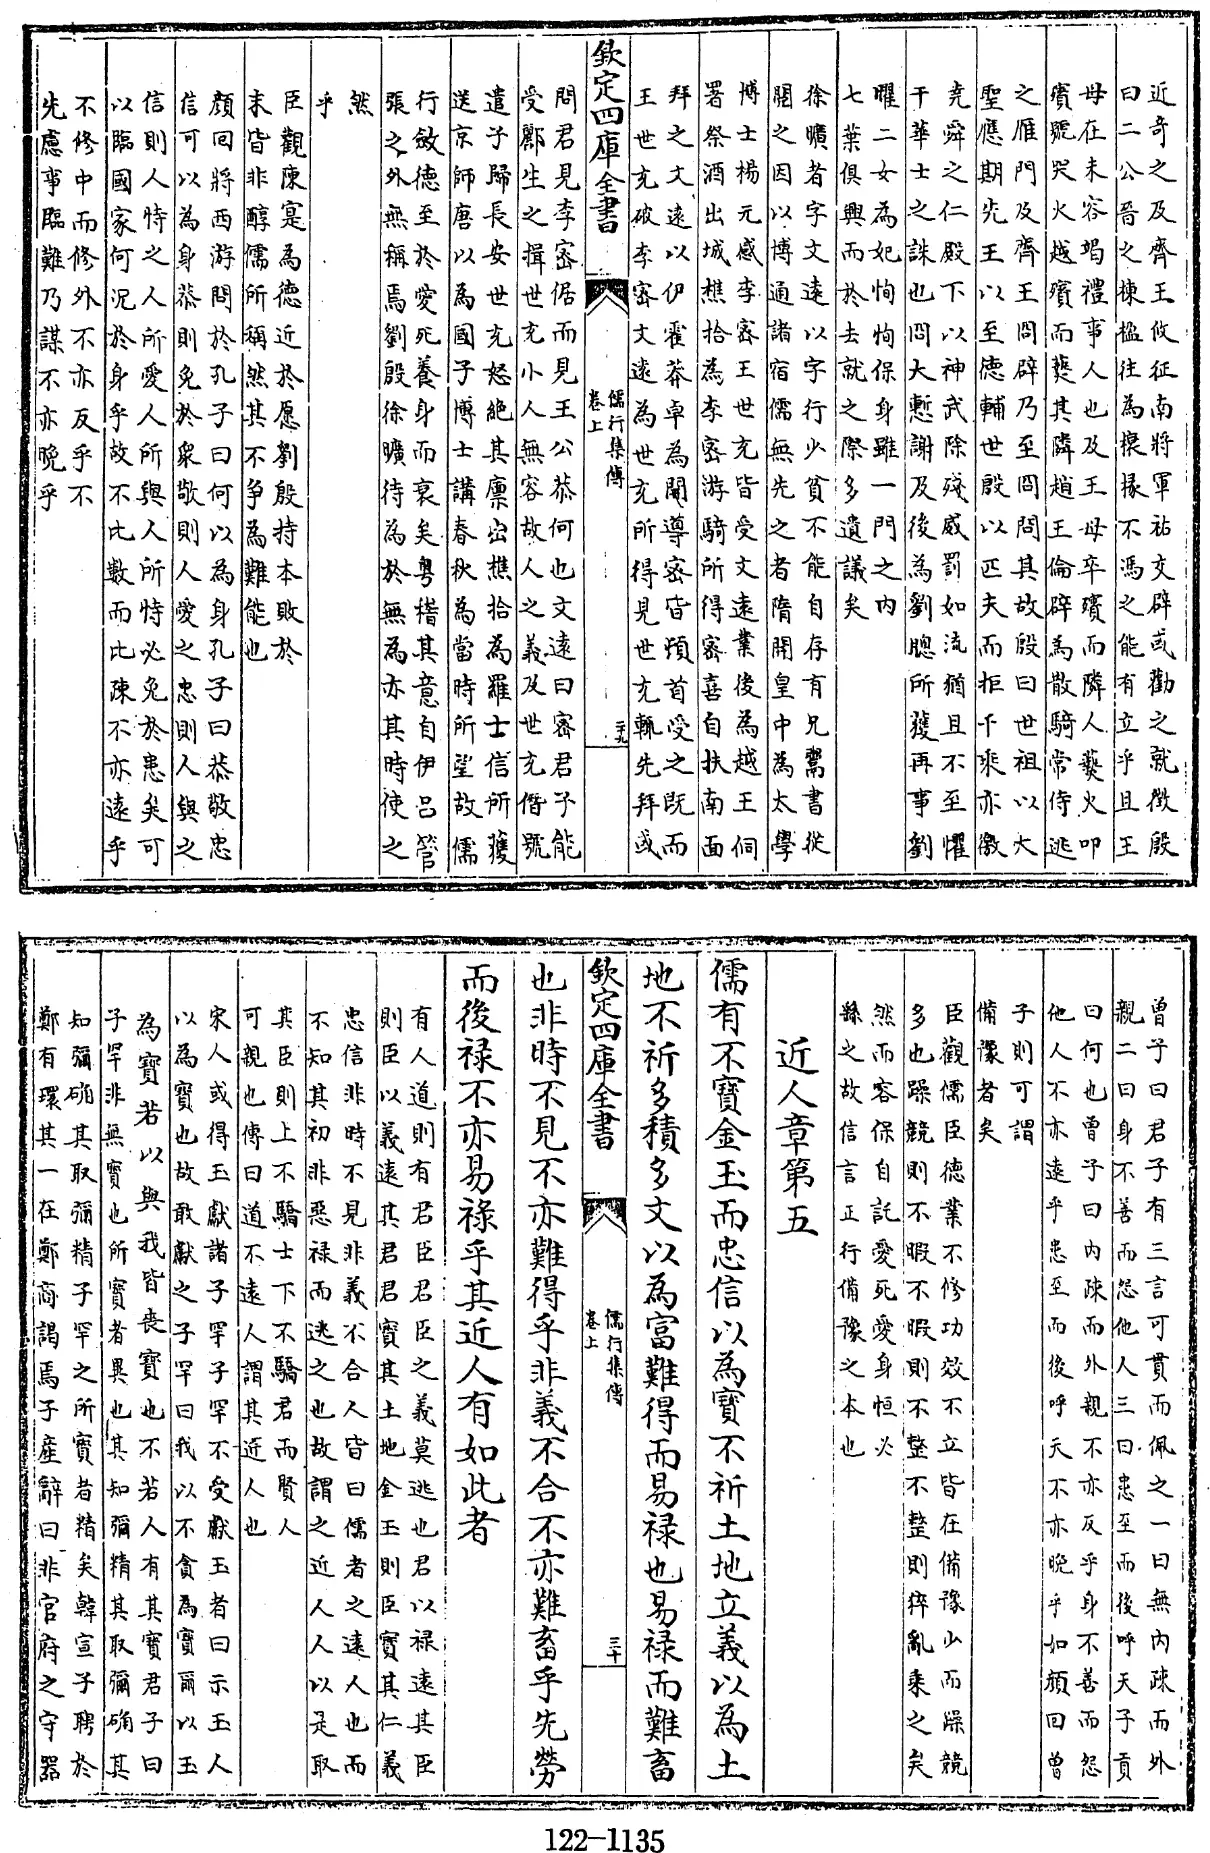 近奇之及齊王攸征南將軍祜交辟或勸之就徵殷
曰二公晉之棟楹徃為榱椽不馮之能有立乎且王
母在未容竭禮事人也及王母卒殯而隣人爇火叩
殯號哭火越殯而爇其隣趙王倫辟為散騎常侍逃
之雁門及齊王冏辟乃至冏問其故殷曰世祖以大
聖應期先王以至德輔世殷以匹夫而拒千乘亦徼
堯舜之仁殿下以神武除殘威罰如流猶且不至懼
干華士之誅也冏大慙謝及後為劉聰所獲再事劉
曜二女為妃恂恂保身雖一門之内
七葉俱興而於去就之際多遺議矣
徐曠者字文遠以字行少貧不能自存有兄鬻書從
閱之因以博通諸宿儒無先之者隋開皇中為太學
博士楊元感李密王世充皆受文遠業後為越王侗
署祭酒出城樵拾為李密游騎所得密喜自扶南面
拜之文遠以伊霍莽卓為闓導密皆頫首受之既而
王世充破李密文遠為世充所得見世充輒先拜或
欽定四庫全書
儒行集傳
卷上
二十九
問君見李密倨而見王公恭何也文遠曰密君子能
受酈生之揖世充小人無容故人之義及世充僭號
遣子歸長安世充怒絶其廪出樵拾為羅士信所獲
送京師唐以為國子博士講春秋為當時所望故儒
行斂德至於愛死養身而衰矣粤稽其意自伊吕管
張之外無稱焉劉殷徐曠待為於無為亦其時使之
然
乎
臣觀陳寔為德近於愿劉殷持本敗於
末皆非醇儒所稱然其不爭為難能也
顔回將西游問於孔子曰何以為身孔子曰恭敬忠
信可以為身恭則免於衆敬則人愛之忠則人與之
信則人恃之人所愛人所與人所恃必免於患矣可
以臨國家何況於身乎故不比數而比疎不亦遠乎
不修中而修外不亦反乎不
先慮事臨難乃謀不亦晩乎
曾子曰君子有三言可貫而佩之一曰無内疎而外
親二曰身不善而怨他人三曰患至而後呼天子貢
曰何也曾子曰内疎而外親不亦反乎身不善而怨
他人不亦遠乎患至而後呼天不亦晩乎如顔回曾
子則可謂
備豫者矣
臣觀儒臣德業不修功效不立皆在備豫少而躁競
多也躁競則不暇不暇則不整不整則猝亂乘之矣
然而容保自託愛死愛身恒必
繇之故信言正行備豫之本也
近人章第五
儒有不寳金玉而忠信以為寳不祈土地立義以為土
地不祈多積多文以為富難得而易禄也易禄而難畜
欽定四庫全書
儒行集傳
卷上
三十
也非時不見不亦難得乎非義不合不亦難畜乎先勞
而後禄不亦易禄乎其近人有如此者
有人道則有君臣君臣之義莫逃也君以禄遠其臣
則臣以義遠其君君寳其土地金玉則臣寳其仁義
忠信非時不見非義不合人皆曰儒者之遠人也而
不知其初非惡禄而逃之也故謂之近人人以是取
其臣則上不驕士下不驕君而賢人
可親也傳曰道不遠人謂其近人也
宋人或得玉獻諸子罕子罕不受獻玉者曰示玉人
以為寳也故敢獻之子罕曰我以不貪為寳爾以玉
為寳若以與我皆喪寳也不若人有其寳君子曰
子罕非無寳也所寳者異也其知彌精其取彌确其
知彌确其取彌精子罕之所寳者精矣韓宣子聘於
鄭有環其一在鄭商謁焉子産辭曰非官府之守器
122-1135